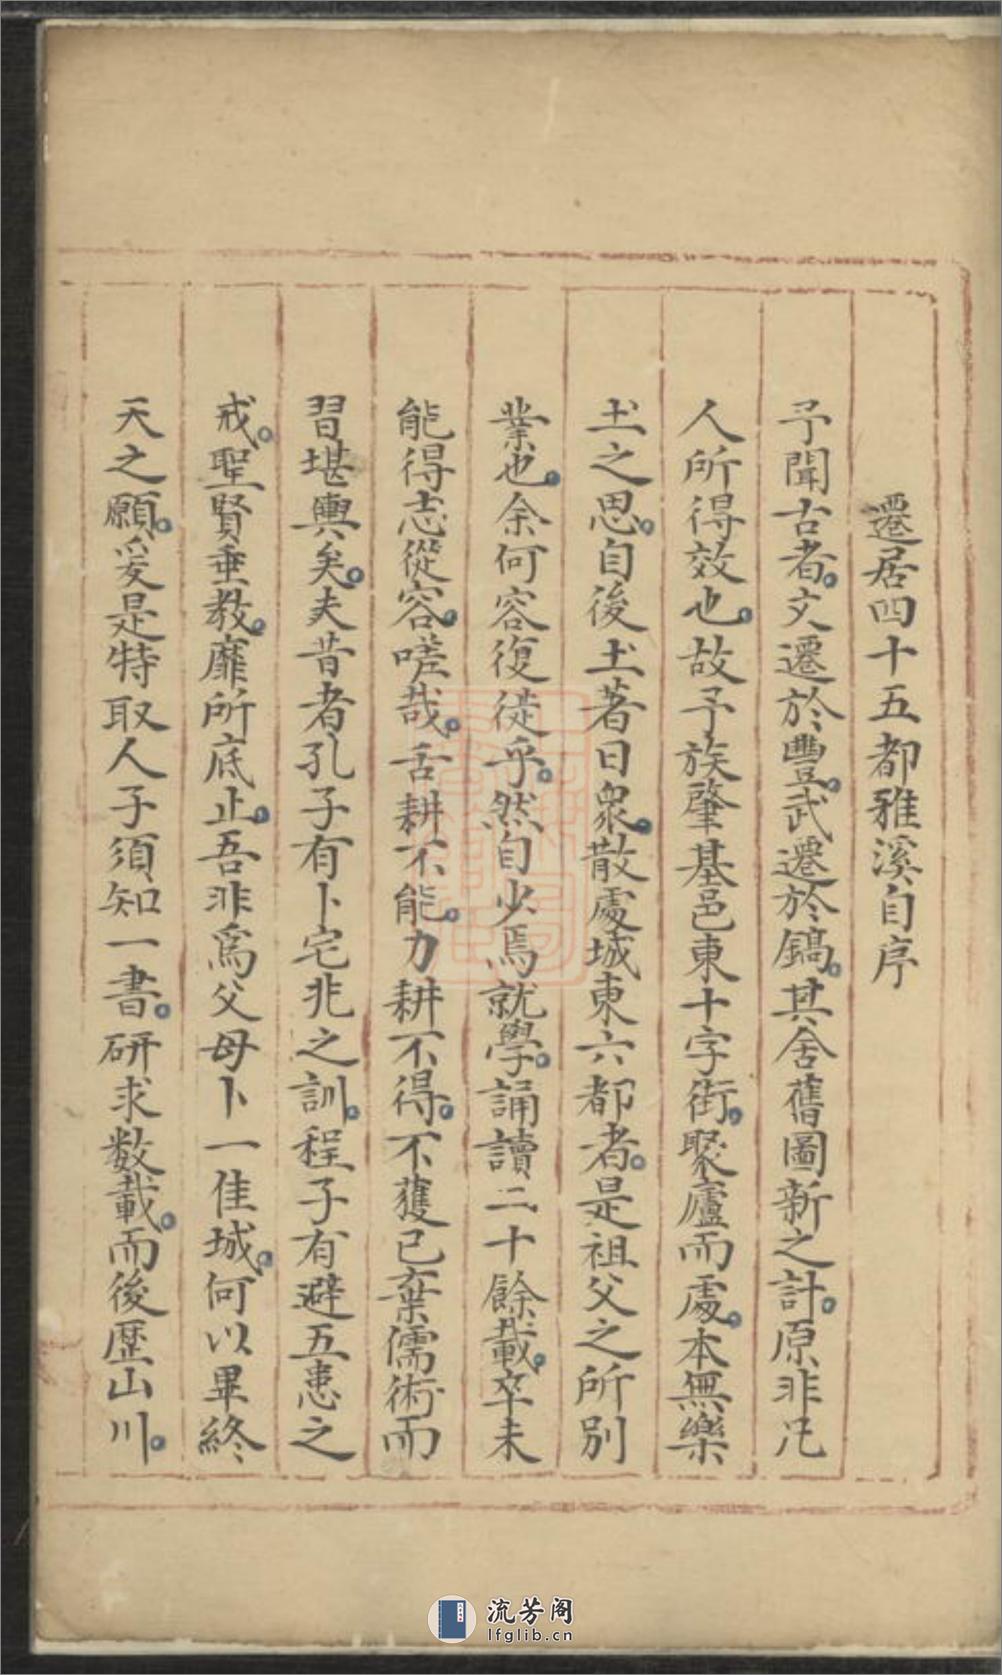 遷居四十五都雅溪自序
予聞古者。文遷於豊。武遷於鎬。其舍舊圖新之計。原非凡
人所得效也。故予族肇基邑東十字街。聚廬而處。本無樂
土之思。自後土著日衆。散處城東六都者。是祖父之所别
業也。余何容復徙乎。然自少焉就學。誦讀二十餘載。卒未
能得志從容。嗟哉。舌耕不能。力耕不得。不獲已棄儒術而
習堪輿矣。夫昔者孔子有卜宅兆之訓。程子有避五患之
戒。聖賢垂教。靡所底止。吾非爲父母卜一佳城。何以畢終
天之願。爰是特取人子須知一書。研求数載。而後歷山川。
流芳阁
lfglib.cn